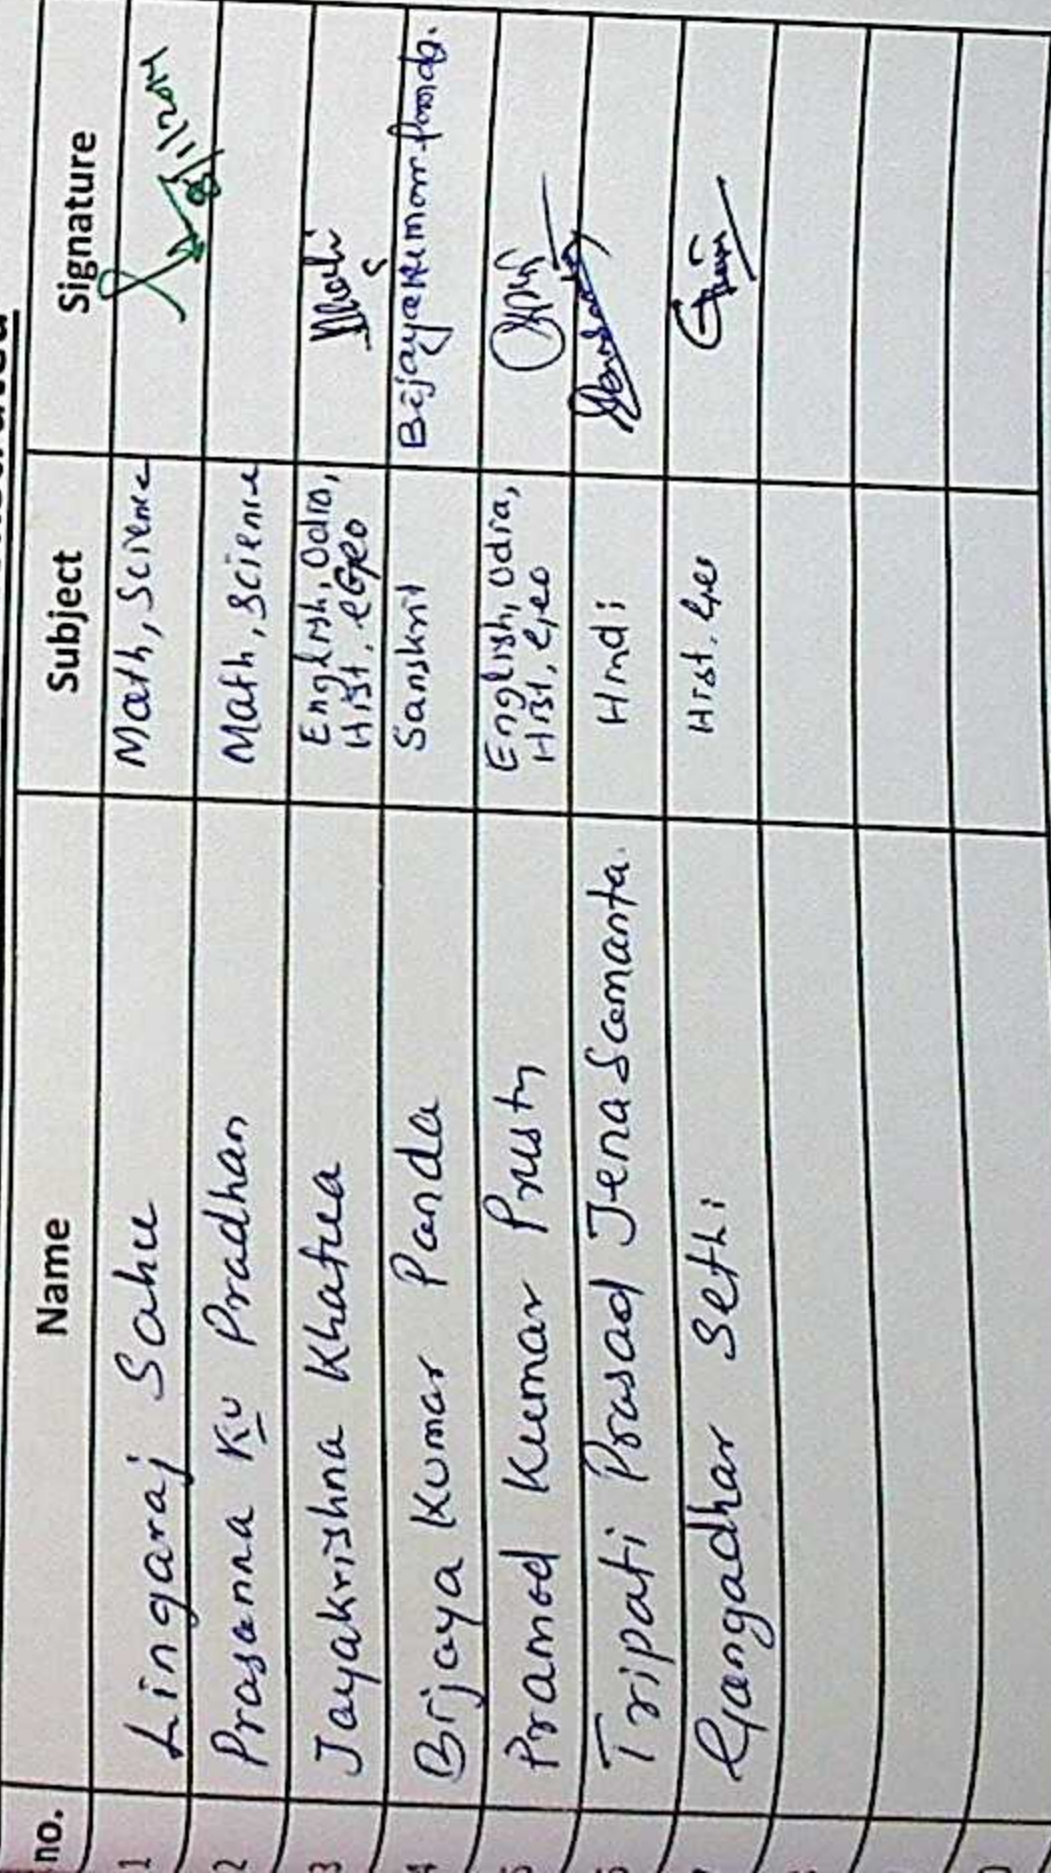 no. Name Subject Signature
1 Lingaraj Sahu Math, Science 8/11/2014
2 Prasanna Ku Pradhan Math, Science
3 Jayakrishna Khatua English, Odia,
Hist, Geo
4 Brijaya Kumar Panda Sanskrit Bijaya Kumar Panda.
5 Pramod Kumar Prusty English, Odia,
Hist, Geo
6 Tripati Prasad Jena Samanta. Hindi
7 Gangadhar Sethi Hist, Geo